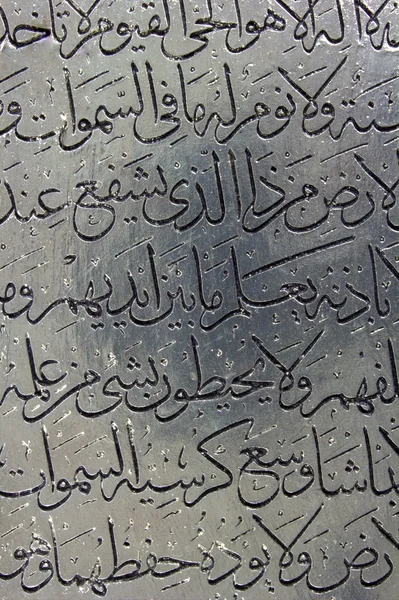 لا اله الا هو الحي القيوم لا تاخذ
سنة ولا نوم له ما في السموات و
الارض من ذا الذي يشفع عند
الا باذنه يعلم ما بين ايديهم وم
خلفهم ولا يحيطون بشي من علمه
بما شا وسع كرسيه السموات
والارض ولا يوده حفظهما وهو